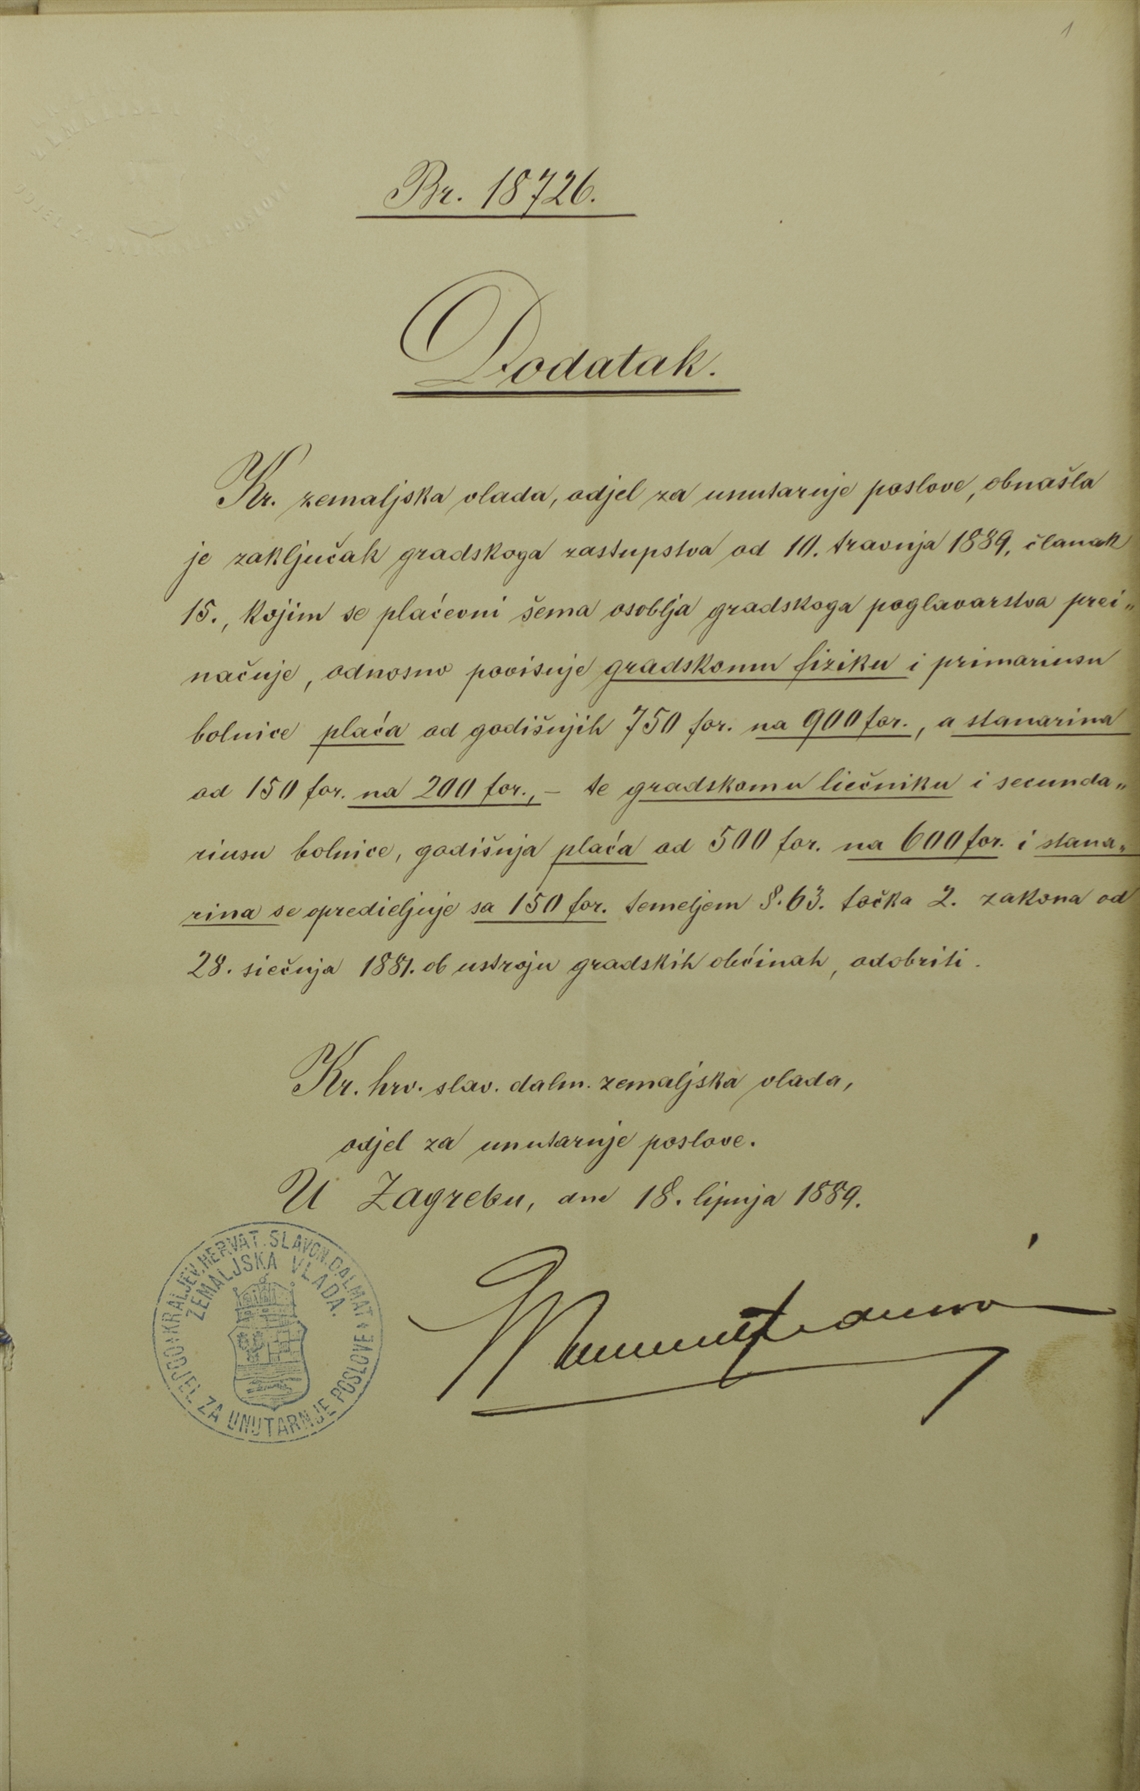 1
Br. 18726.
Dodatak.
Kr. zemaljska vlada, odjel za unutarnje poslove, obnašla
je zaključak gradskoga zastupstva od 10. travnja 1889, članak
15., kojim se plaćevni šema osoblja gradskoga poglavarstva prei„
načuje, odnosno povisuje gradskomu fiziku i primariusu
bolnice plaća od godišnjih 750 for. na 900 for., a stanarina
od 150 for. na 200 for., – te gradskomu liečniku i secunda„
riusu bolnice, godišnja plaća od 500 for. na 600 for. i stana„
rina se opredieljuje sa 150 for. temeljem §. 63. točka 2. zakona od
28. siečnja 1881. ob ustroju gradskih občinah, odobriti.
Kr. hrv. slav. dalm. zemaljska vlada,
odjel za unutarnje poslove.
U Zagrebu, dne 18. lipnja 1889.
KRALJEV. HERVAT. SLAVON. DALMAT
ZEMALJSKA VLADA.
ODJEL ZA UNUTARNJE POSLOVE